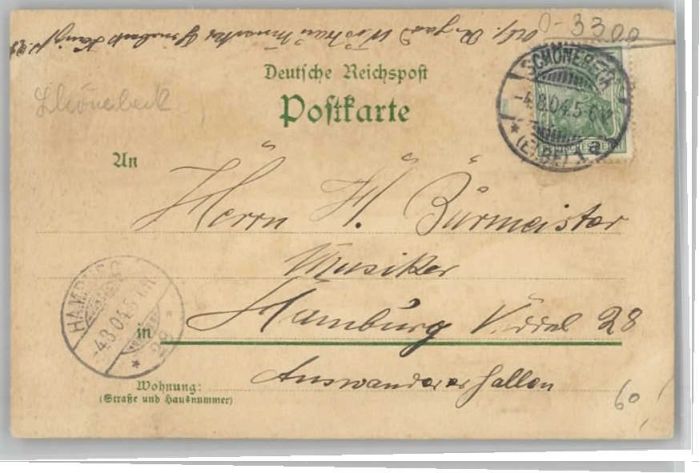 0-3300
Deutsche Reichspost
Postkarte
Schönebeck
SCHÖNEBECK
-4.8.04.5-6N.
* (ELBE) 1a
An
Herrn H. Bürmeister
Musiker
in Hamburg Veddel 28
HAMBURG
-4.8.04.5
* 28 *
Auswandererhallen
Wohnung:
(Straße und Hausnummer)
60